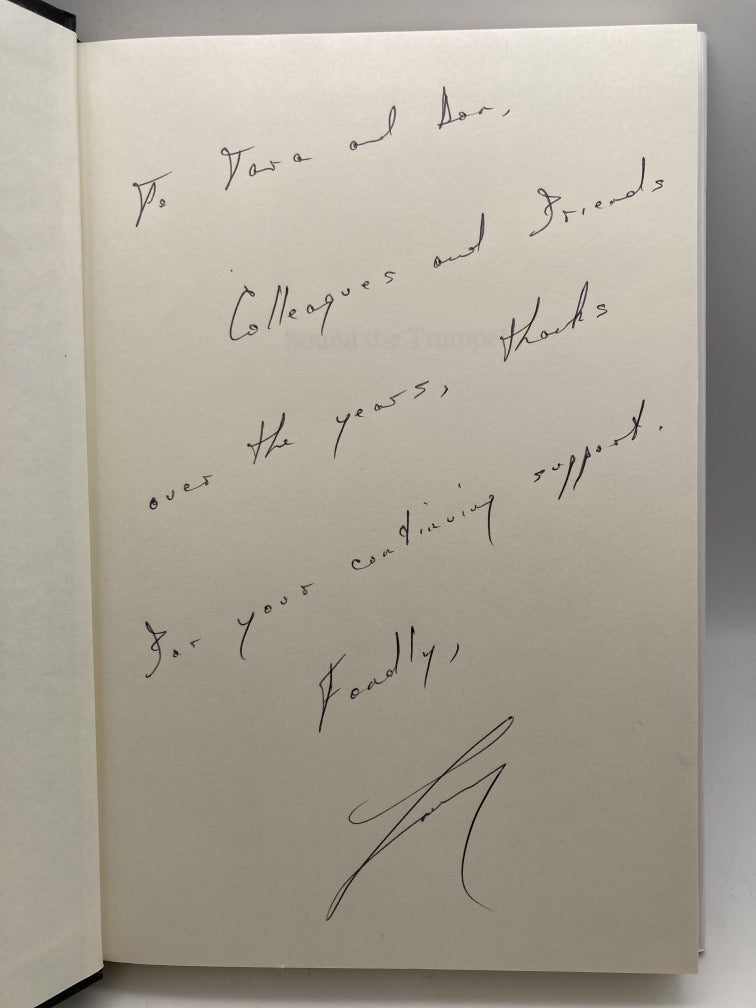 To Tara and Don,
Colleagues and Friends
Sound the Trumpet
over the years, thanks
For your continuing support.
Fondly,